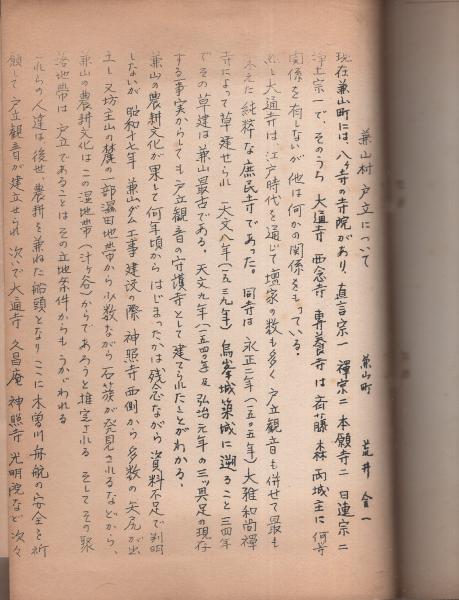 兼山村 戸立について
兼山町 荒井金一
現在兼山町には、八ヶ寺の寺院があり、真言宗一 禅宗二 本願寺二 日連宗二
浄土宗一で、そのうち 大通寺 西念寺 専養寺は 斉藤 森 両城主に 何等
関係を有しないが 他は何かの関係をもっている。
し 大通寺は、江戸時代を通じて 壇家の数も多く 戸立観音も併せて 最も
えた 純粋な庶民寺であった。同寺は 永正二年(一五〇五年)大雅和尚禅
寺によって草建せられ 天文八年(一五三九年)烏峯城築城に 遡ること 三四年
でその草建は 兼山最古である。天文九年(一五四〇年)及 弘治元年の三ッ具足の現存
する事実からしても 戸立観音の守護寺として 建てられたことがわかる。
兼山の農耕文化が 果して何年頃から はじまったかは 残念ながら 資料不足で判明
しないが 昭和十七年 兼山ダム工事建設の際 神照寺西側から 多数の矢尻が出
土し 又 坊主山の麓の一部 湿田地帯から 少数ながら 石簇が発見されるなどから、
兼山の農耕文化は この湿地帯(汁ヶ谷)からであろうと 推定される そしてその聚
落地帯は 戸立であることは その立地條件からも うかがわれる
れらの人達は 後世、農耕を兼ねた船頭となり ここに木曽川舟航の安全を祈
願して 戸立観音が建立せられ 次いで 大通寺 久昌庵 神照寺 光明院など 次々